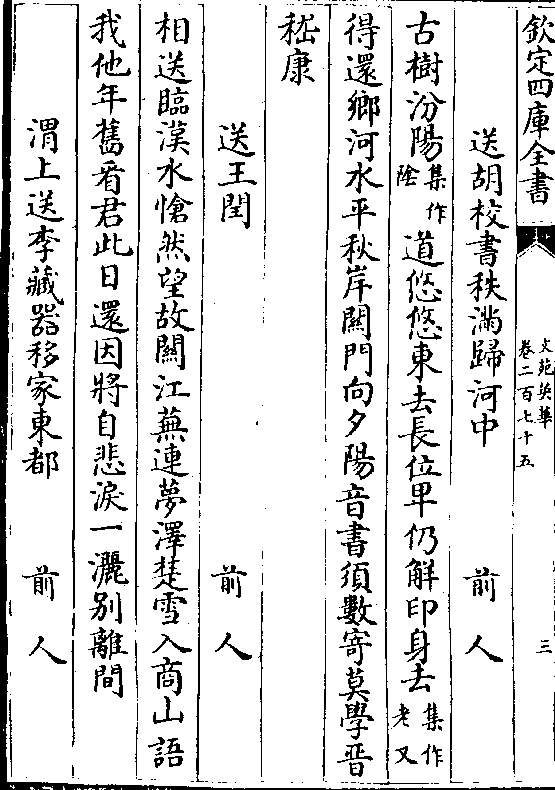 欽定四庫全書
文苑英華
卷二百七十五
三
送胡校書秩滿歸河中 前人
古樹汾陽集作陰道悠悠東去長位卑仍解印身去集作老又
得還鄉河水平秋岸關門向夕陽音書須數寄莫學晉
嵇康
送王閏 前人
相送臨漢水愴然望故關江蕪連夢澤楚雪入商山語
我他年舊看君此日還因將自悲淚一灑別離間
渭上送李藏器移家東都 前人